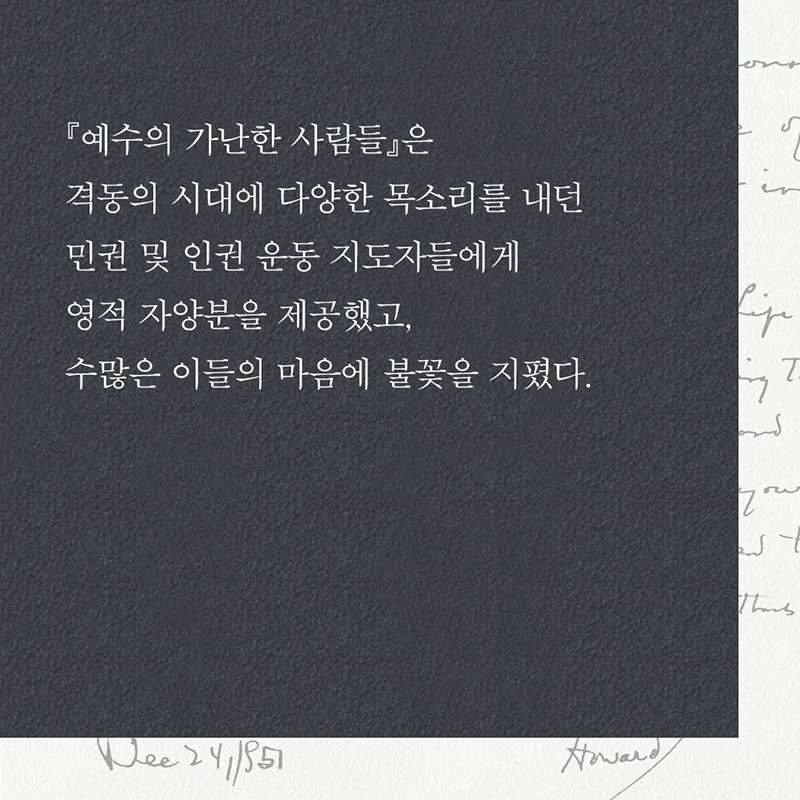 『예수의 가난한 사람들』은
격동의 시대에 다양한 목소리를 내던
민권 및 인권 운동 지도자들에게
영적 자양분을 제공했고,
수많은 이들의 마음에 불꽃을 지폈다.
Life
Dec 24, 1951
Howard